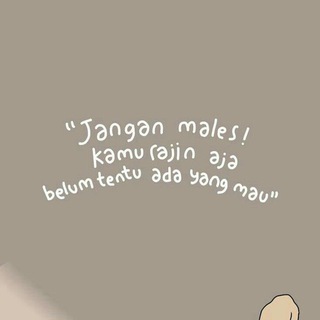 "Jangan males!
kamu rajin aja
belum tentu ada yang mau"